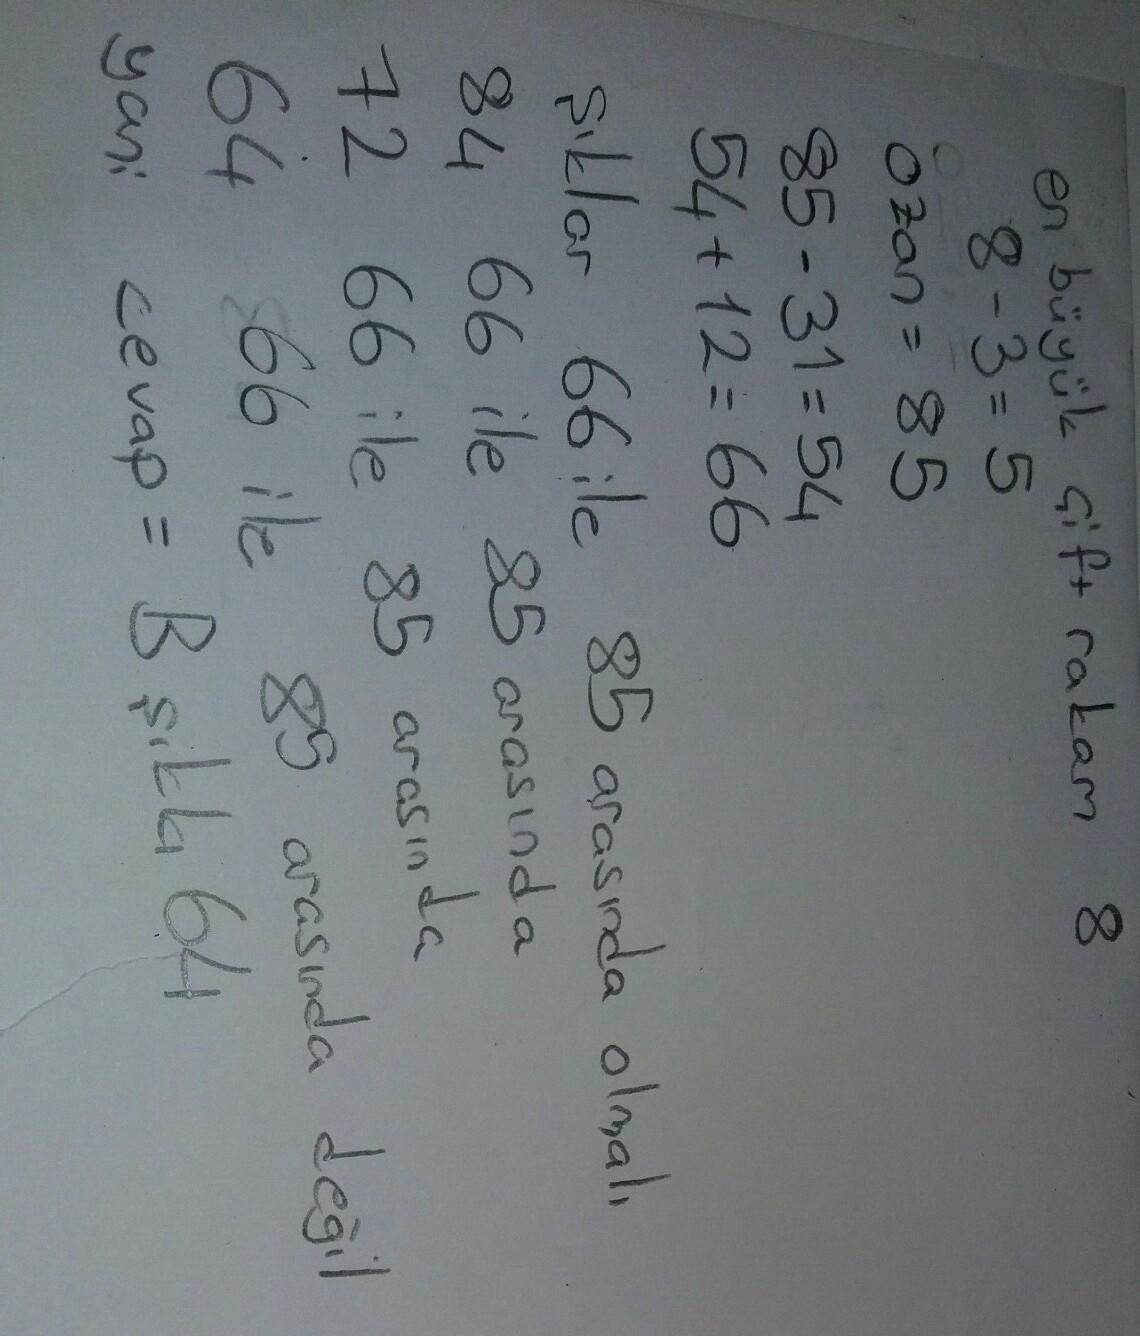 en büyük çift rakam 8
8-3=5
ozan = 85
85-31=54
54+12=66
şıklar 66 ile 85 arasında olmalı
84 66 ile 85 arasında
72 66 ile 85 arasında
64 66 ile 85 arasında değil
yani cevap = B şıkkı 64